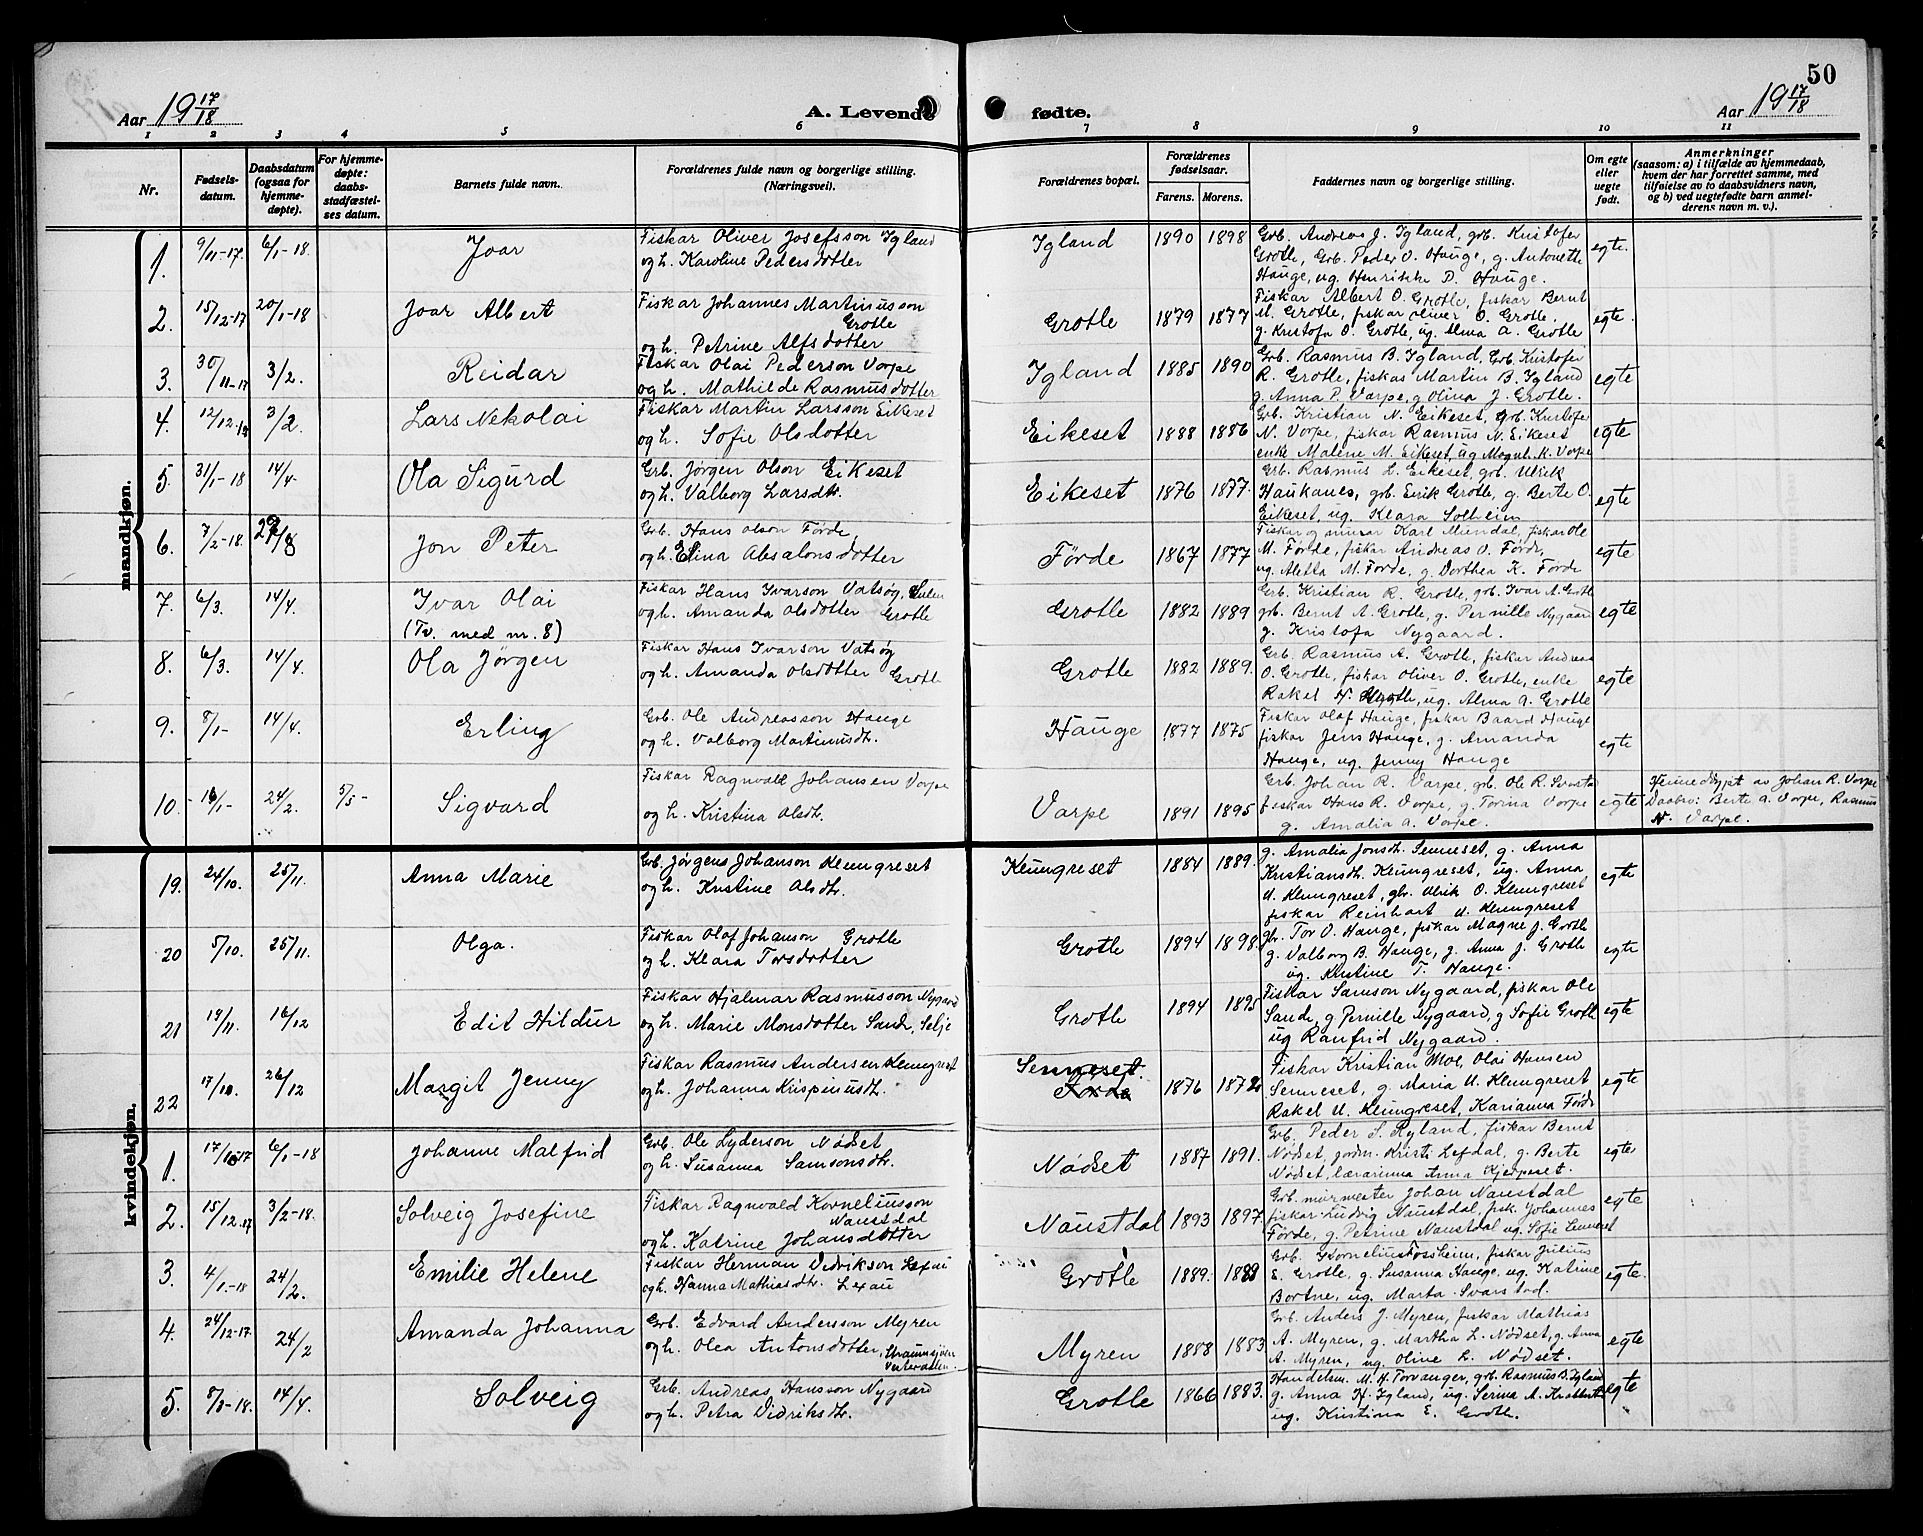 50
Aar 19 17/18 A. Levende fødte. Aar 19 17/18
1 2 3 4 5 6 7 8 9 10 11
Nr. Fødsels-datum. Daabsdatum (ogsaa for hjemme-døpte). For hjemme-døpte: daabs-stadfæstel-ses datum. Barnets fulde navn. Forældrenes fulde navn og borgerlige stilling. (Næringsvei). Forældrenes bopæl. Forældrenes fødselsaar. Farens. Morens. Faddernes navn og borgerlige stilling. Om egte eller uegte født. Anmerkninger (saasom: a) i tilfælde av hjemmedaab, hvem der har forrettet samme, med tilføielse av to daabsvidners navn, og b) ved uegtefødte barn anmel-derens navn m. v.).
mandkjøn.
1. 9/11-17. 6/1-18. Joar Fiskar Oliver Josefsson Igland Igland 1890 1898 Grb. Andreas J. Igland, grb. Kristofer egte.
og h. Karoline Pedersdotter Grotle, Grb. Peder O. Hauge, g. Antonette
Hauge, ug. Henrikke P. Hauge.
2. 15/12-17 20/1-18 Joar Albert Fiskar Johannes Martinusson Grotle 1879 1877 Fiskar Albert O. Grotle, fiskar Bernt egte.
Grotle M. Grotle, fiskar Oliver O. Grotle.
og h. Petrine Alfsdotter g. Kristofa O. Grotle, ug. Alma A. Grotle
3. 30/11-17 3/2. Reidar Fiskar Olai Pederson Varpe Igland 1885 1890 Grb. Rasmus B. Igland, Grb. Kristofer egte
og h. Mathilde Rasmusdotter R. Grotle, fiskar Martin B. Igland
g. Anna P. Varpe, g Olina J. Grotle.
4. 12/12-17 3/2 Lars Nekolai Fiskar Martin Larsson Eikeset Eikeset 1888 1886 Grb. Kristian N. Eikeset, grb. Kristofer egte
og h. Sofie Olsdotter N. Varpe, fiskar Rasmus N. Eikeset
enke Malene M. Eikeset, ug Magnh. K. Varpe
5. 31/1-18 14/4 Ola Sigurd Grb. Jørgen Olson Eikeset Eikeset 1876 1877. Grb. Rasmus L. Eikeset, grb. Ulrik egte
og h. Valborg Larsdtr. Haukanes, grb. Eirik Grotle, g. Berte O.
Eikeset, ug. Klara Solheim
6. 7/2-18. Jon Peter Grb. Hans Olson Førde, Førde 1867 1877 Fiskar og murar Karl Mundal, fiskar Ole egte
og h. Elina Absalonsdotter M. Førde, fiskar Andreas O. Førde,
ug. Aletta M. Førde, g Dorthea K. Førde
7. 6/3. 14/4. Ivar Olai Fiskar Hans Ivarson Vatsøy, Sulen Grotle 1882 1889 Grb. Kristian R. Grotle, grb. Ivar A. Grotle egte
(Tv. med nr. 8) og h. Amanda Olsdotter Grotle grb. Bernt A. Grotle, g. Pernille Nygaard
g. Kristofa Nygaard.
8. 6/3. 14/4. Ola Jørgen Fiskar Hans Ivarson Vatsøy Grotle 1882 1889. Grb. Rasmus A. Grotle, fiskar Andreas egte
og h. Amanda Olsdotter Grotle O. Grotle, fiskar Oliver O. Grotle, enke
Rakel N. Grotle, ug. Alma A. Grotle
9. 8/1- 14/4. Erling Grb. Ole Andreasson Hauge Hauge 1877 1875 Fiskar Olaf Hauge, fiskar Baard Hauge egte
og h. Valborg Martinusdtr. fiskar Jens Hauge, g. Amanda
Hauge, ug. Jenny Hauge
10. 16/1- 24/2. 5/5- Sigvard Fiskar Ragnvald Johansen Varpe Varpe 1891 1895 Grb. Johan R. Varpe, grb. Ole R. egte Heimedøypt av Johan R. Varpe
og h. Kristina Olsdtr. fiskar Hans R. Varpe, g. Torina Varpe Daabsv: Berte A. Varpe, Rasmus
g. Amalia A. Varpe. N. Varpe.
kvindekjøn.
19. 24/10. 25/11. Anna Marie Grb. Jørgens Johanson Keungreset Keungreset 1884 1889. g. Amalia Jonsdtr. Senneset, g. Anna egte
og h. Kristine Olsdtr. Kristiansdtr. Keungreset, ug. Anna
U. Keungreset, gbr. Ulrik O. Keungreset
fiskar Reinhart U. Keungreset
20 5/10. 25/11. Olga. Fiskar Olaf Johanson Grotle Grotle 1894 1898. gbr. Tor O. Hauge, fiskar Magne J. Grotle egte
og h. Klara Torsdotter g. Valborg B. Hauge, g. Anna J. Grotle
ug. Kristine T. Hauge.
21 19/11. 16/12 Edit Hildur Fiskar Hjalmar Rasmusson Nygaard Grotle 1894 1895 Fiskar Samson Nygaard, fiskar Ole egte
og h. Marie Monsdotter Sande, Selje Sande, g Pernille Nygaard, g Sofie Grotle
ug Ranfrid Nygaard.
22 17/10. 26/12 Margit Jenny Fiskar Rasmus Andersen Keungreset Senneset. Førde 1876 1872 Fiskar Kristian Moe, Olai Hansen egte
og h. Johanna Krispinusdtr. Senneset, g. Maria U. Keungreset
Rakel U. Keungreset, Karianna Førde
1. 6/1-18 Johanne Malfrid Grb. Ole Lyderson Nødset Nødset 1887 1891. Grb. Peder S. Ryland, fiskar Bernt egte
og h. Susanna Samsonsdtr. Nødset, jordm. Kristi Lefdal, g. Berte
Nødset, lærarinna Anna Kjerpeset.
2. 15/12-17 3/2-18. Solveig Josefine Fiskar Ragnvald Korneliusson Naustdal 1893 1897 Grb. murmester Johan Naustdal egte
Naustdal fiskar Ludvig Naustdal, fisk. Johannes
og h. Katrine Johansdotter Førde, g. Petrine Naustdal ug. Sofie Senneset
3. 4/1-18 24/2. Emilie Helene Fiskar Herman Didrikson Lexau Grotle 1889. 1889 Grb. Kornelius Fossheim, fiskar Julius egte.
og h. Hanna Mathiasdtr. Lexau E. Grotle, g. Susanna Hauge, ug. Katrine
Bortne, ug. Marta Svarstad.
4. 24/12-17. 24/2 Amanda Johanna Grb. Edvard Andersson Myren Myren 1888 1883 Grb. Anders J. Myren, fiskar Mathias egte
og h. Olea Antonsdotter, A. Myren, g. Martha L. Nødset, g. Anna
A. Myren, ug. Oline L. Nødset.
5. 8/3-18. 14/4. Solveig Grb. Andreas Hansson Nygaard Grotle 1866 1883. Handelsm. M. H. Torvanger, grb. Rasmus B. Igland egte
og h. Petra Didriksdtr. g. Anna H. Igland, ug. Serina A.
ug. Kristina E. Grotle.